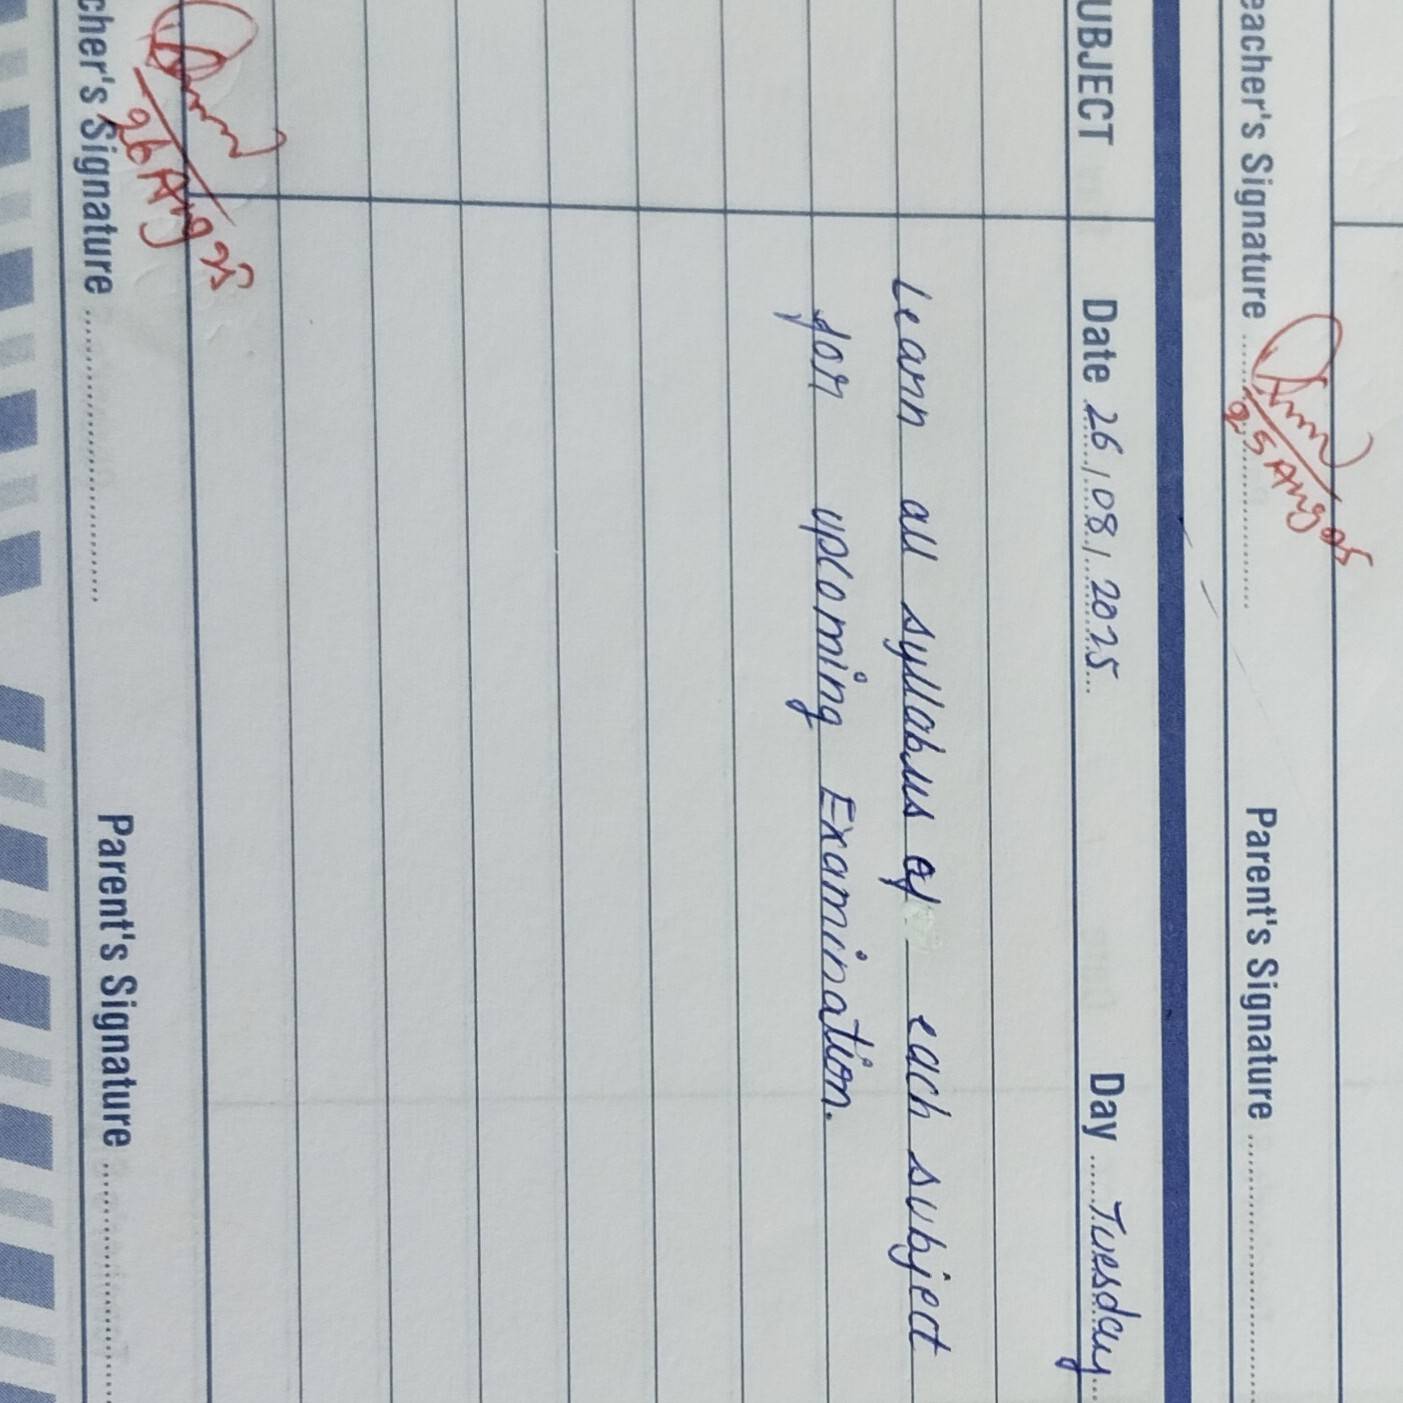 eacher's Signature ........ Parent's Signature ........
25 Aug 25
UBJECT Date 26/08/2025 Day Tuesday
Learn all syllabus of each subject
for upcoming Examination.
26 Aug 25
cher's Signature ........ Parent's Signature ........